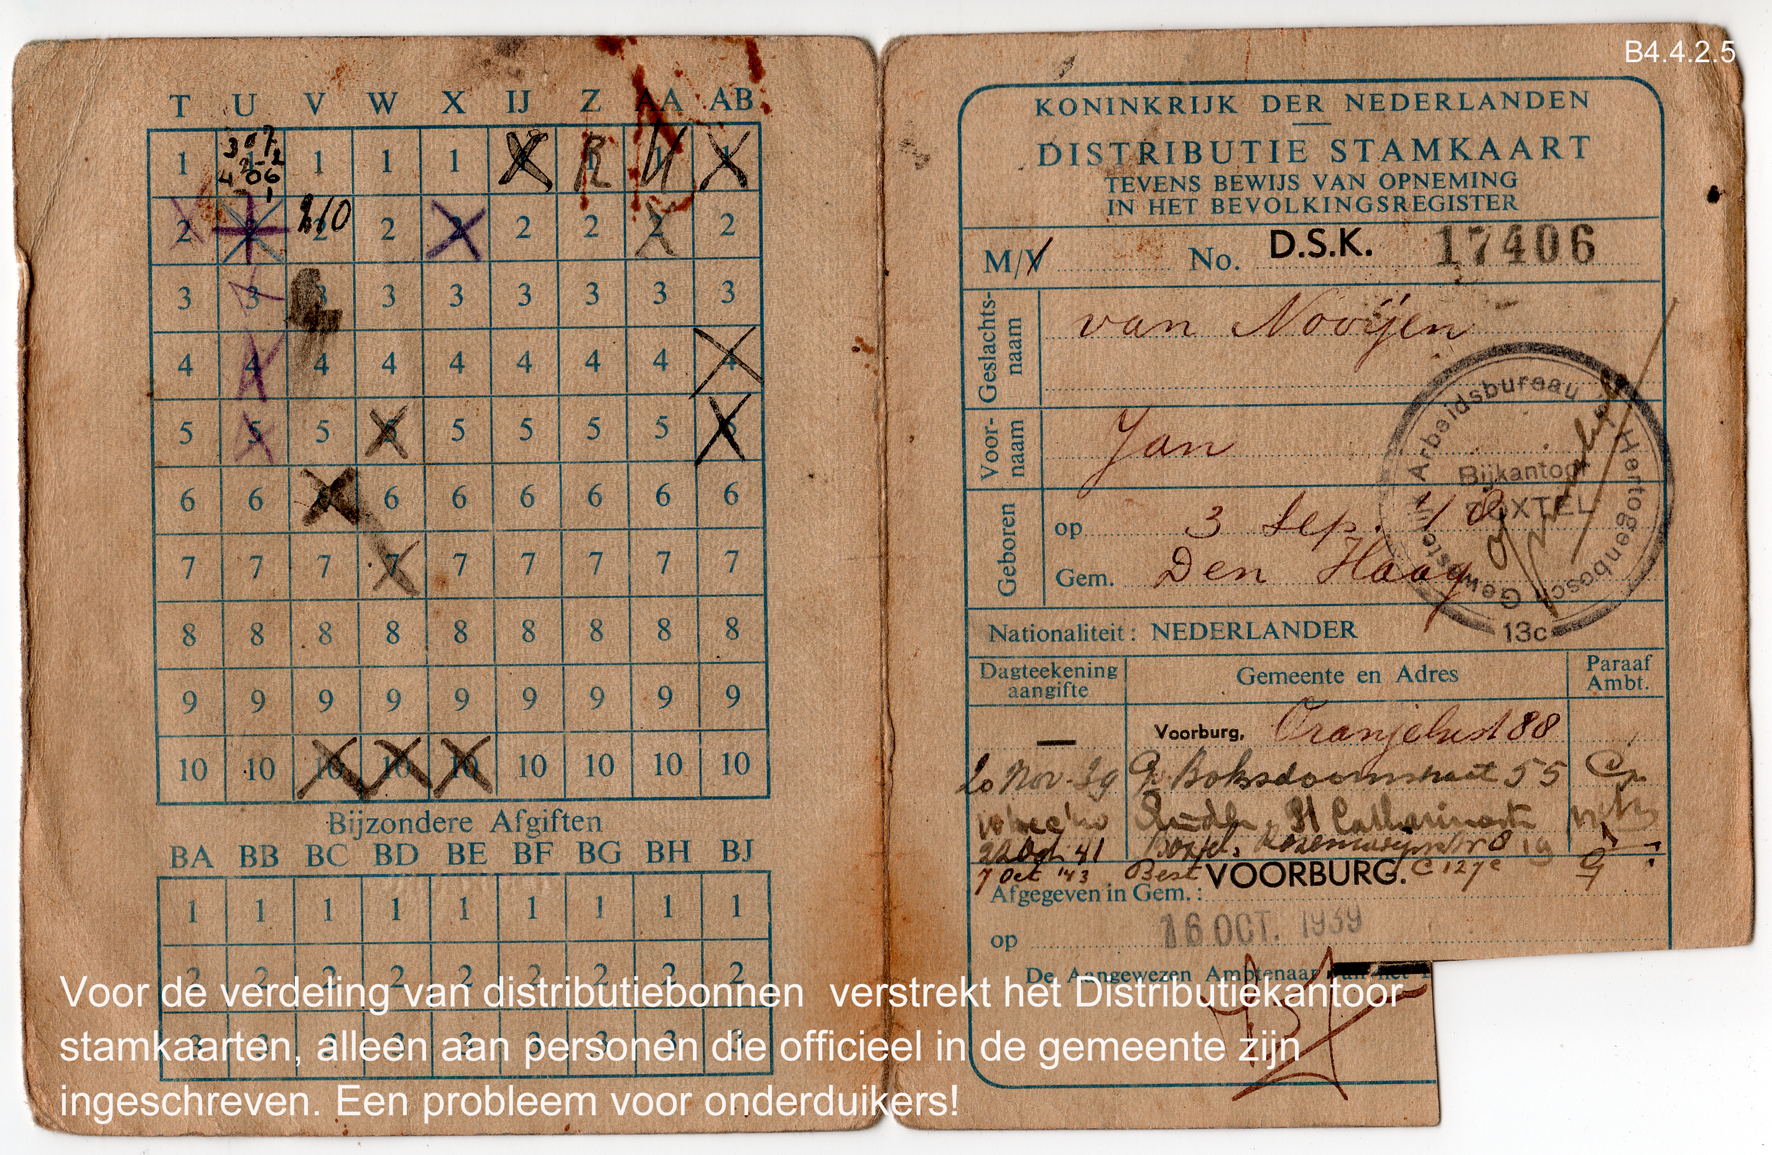 B4.4.2.5
T U V W X IJ Z AA AB
1 1 1 1 1
2 2 2 2 2 2 2 2
3 3 3 3 3 3 3 3
4 4 4 4 4 4 4 4 4
5 5 5 5 5 5 5
6 6 6 6 6 6 6 6
7 7 7 7 7 7 7 7 7
8 8 8 8 8 8 8 8 8
9 9 9 9 9 9 9 9 9
10 10 10 10 10 10 10 10 10
Bijzondere Afgiften
BA BB BC BD BE BF BG BH BJ
1 1 1 1 1 1 1 1 1
2 2 2 2 2 2 2 2 2
3 3 3 3 3 3 3 3 3
KONINKRIJK DER NEDERLANDEN
DISTRIBUTIE STAMKAART
TEVENS BEWIJS VAN OPNEMING
IN HET BEVOLKINGSREGISTER
M/V No. D.S.K. 17406
Geslachts-
naam
van Nooijen
Voor-
naam
Jan
Geboren
op 3 Sep.
Gem. Den Haag
Gewestelijk Arbeidsbureau 's Hertogenbosch
Bijkantoor
BOXTEL
13c
Nationaliteit: NEDERLANDER
Dagteekening
aangifte
Gemeente en Adres
Paraaf
Ambt.
Voorburg, Oranjelust 88
20 Nov-39 55
St Catharina
22 Oct 41 Boxtel, 8
7 Oct '43 Best C 127c
Afgegeven in Gem.: VOORBURG.
op 16 OCT. 1939
De Aangewezen Ambtenaar van het
Voor de verdeling van distributiebonnen verstrekt het Distributiekantoor
stamkaarten, alleen aan personen die officieel in de gemeente zijn
ingeschreven. Een probleem voor onderduikers!